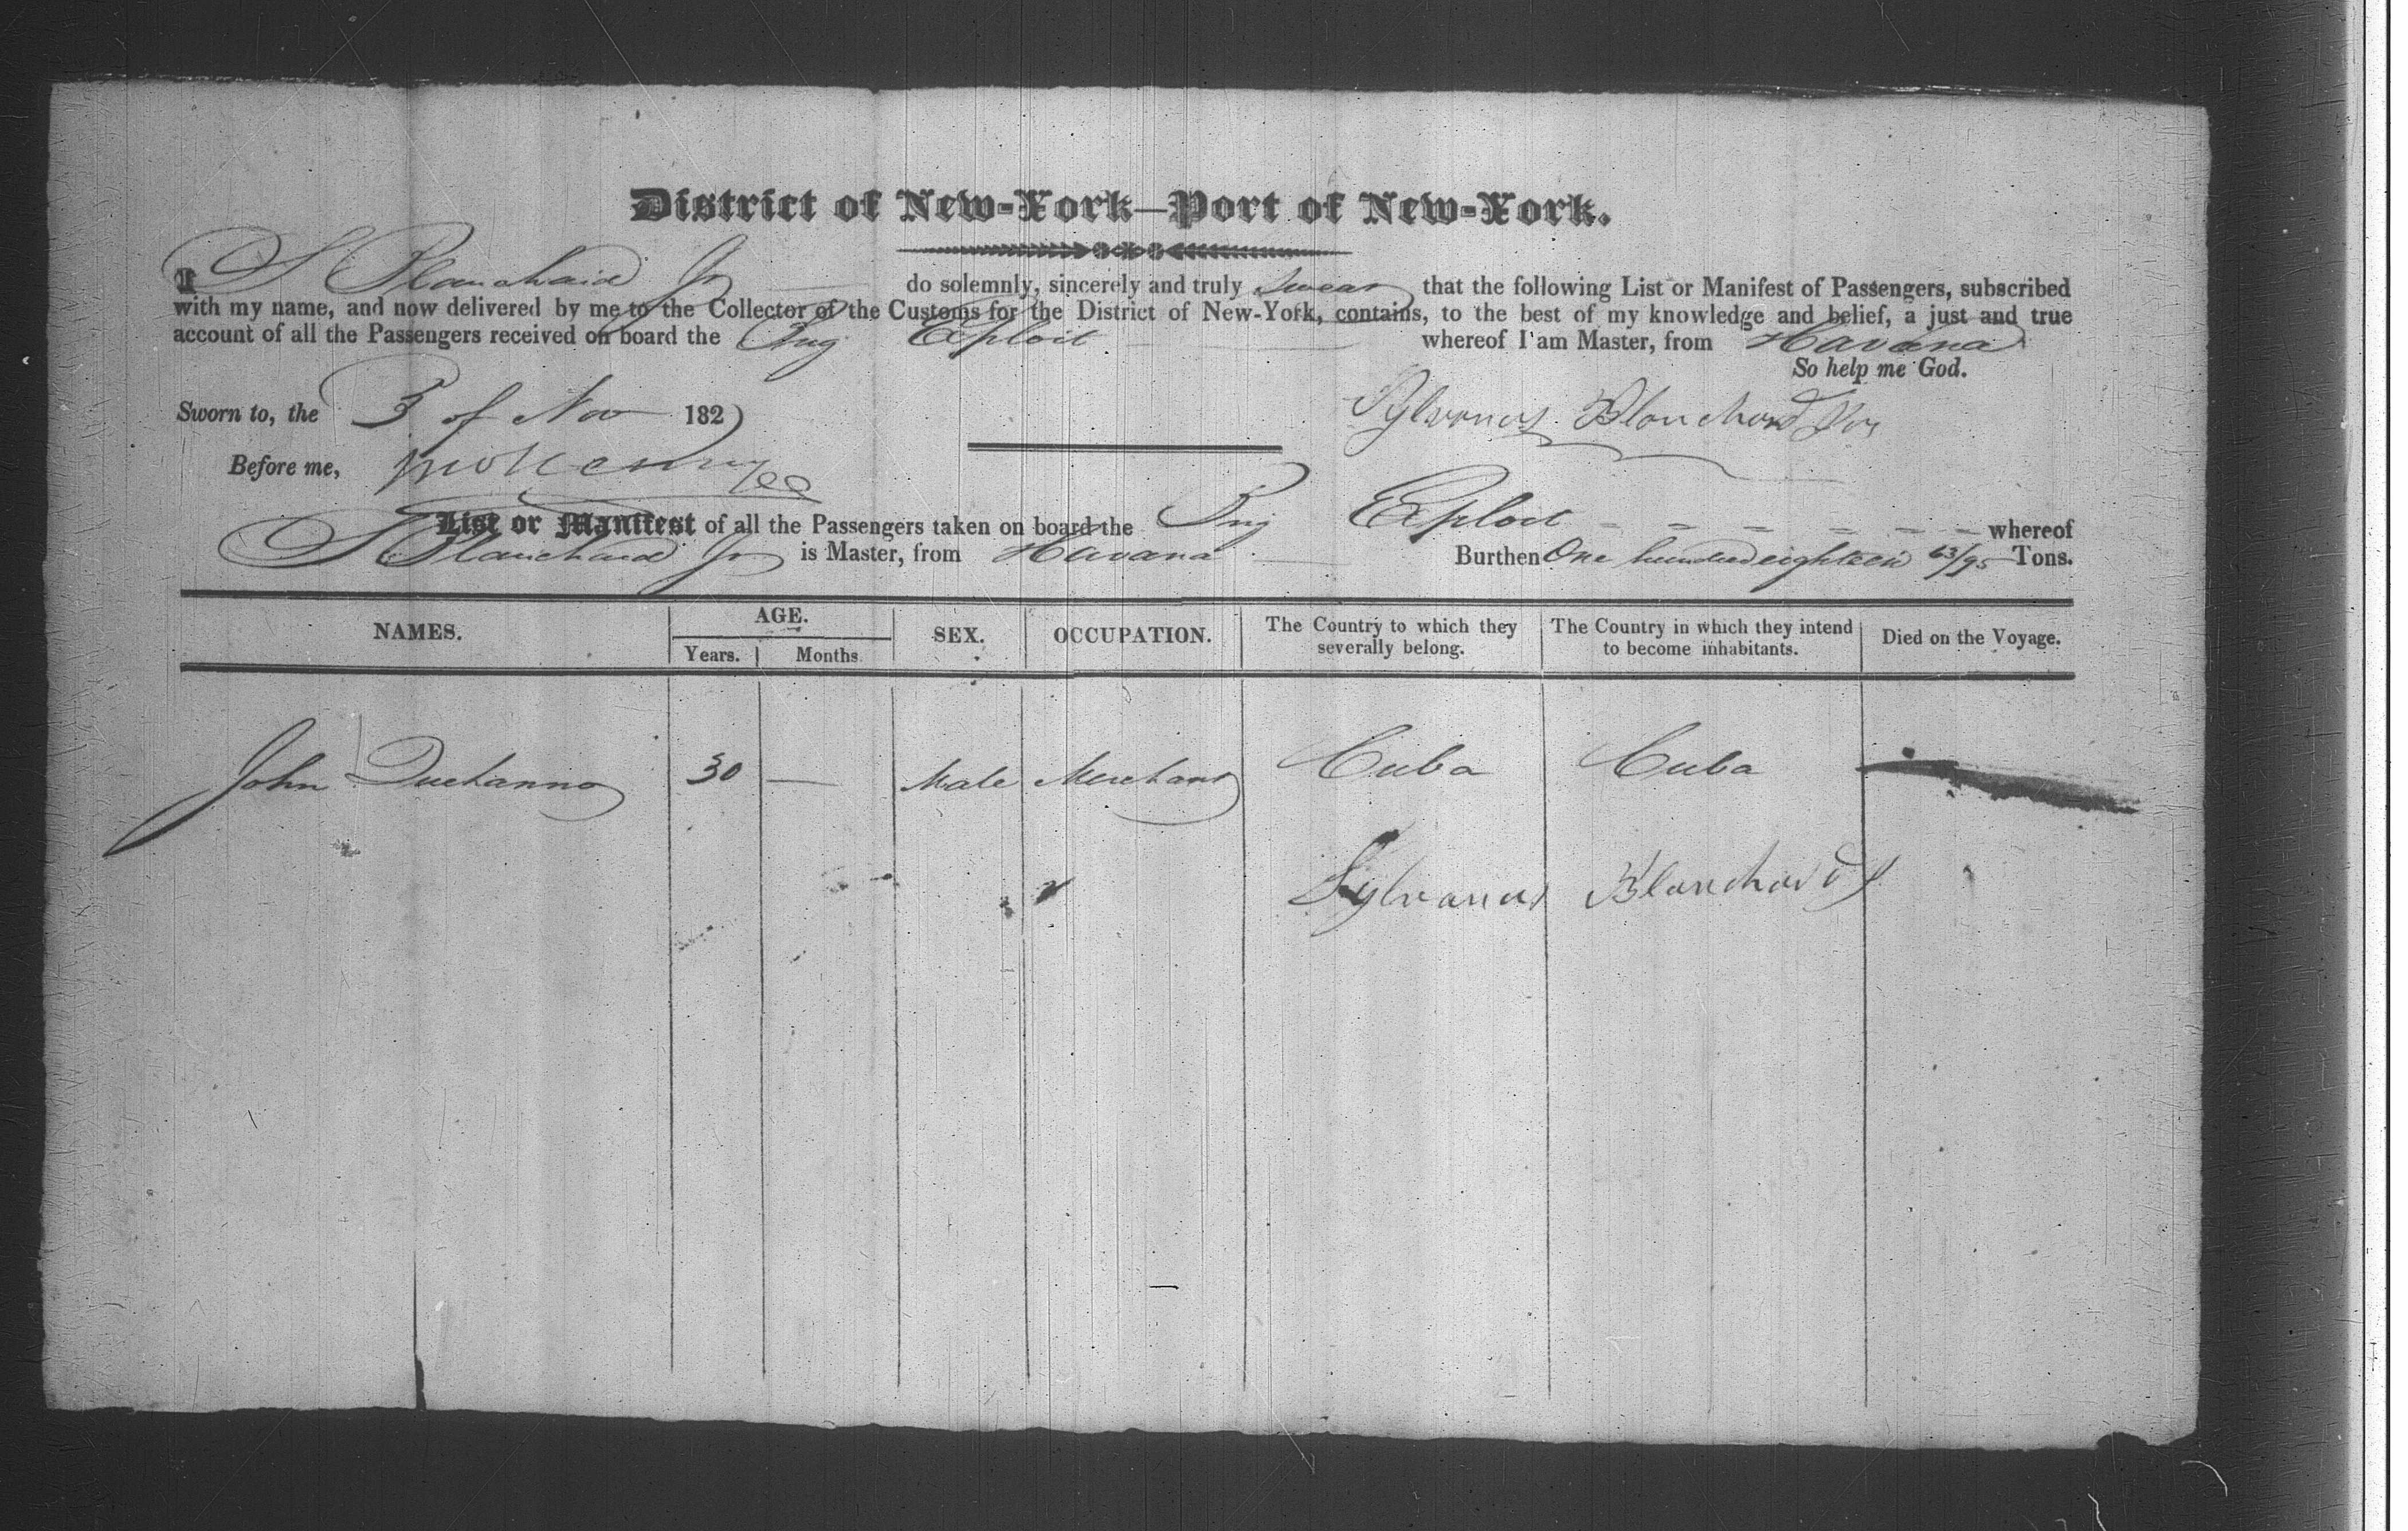 District of New-York—Port of New-York.
I S Blanchard Jr do solemnly, sincerely and truly swear that the following List or Manifest of Passengers, subscribed
with my name, and now delivered by me to the Collector of the Customs for the District of New-York, contains, to the best of my knowledge and belief, a just and true
account of all the Passengers received on board the Brig Exploit whereof I am Master, from Havana
So help me God.
Sworn to, the 3 of Nov 182
Sylvanus Blanchard Jr
Before me,
List or Manifest of all the Passengers taken on board the Brig Exploit whereof
S Blanchard Jr is Master, from Havana Burthen One hundred eighteen 63/95 Tons.
NAMES. AGE. SEX. OCCUPATION. The Country to which they severally belong. The Country in which they intend to become inhabitants. Died on the Voyage.
Years. Months
John 30 — Male Merchant Cuba Cuba
Sylvanus Blanchard Jr